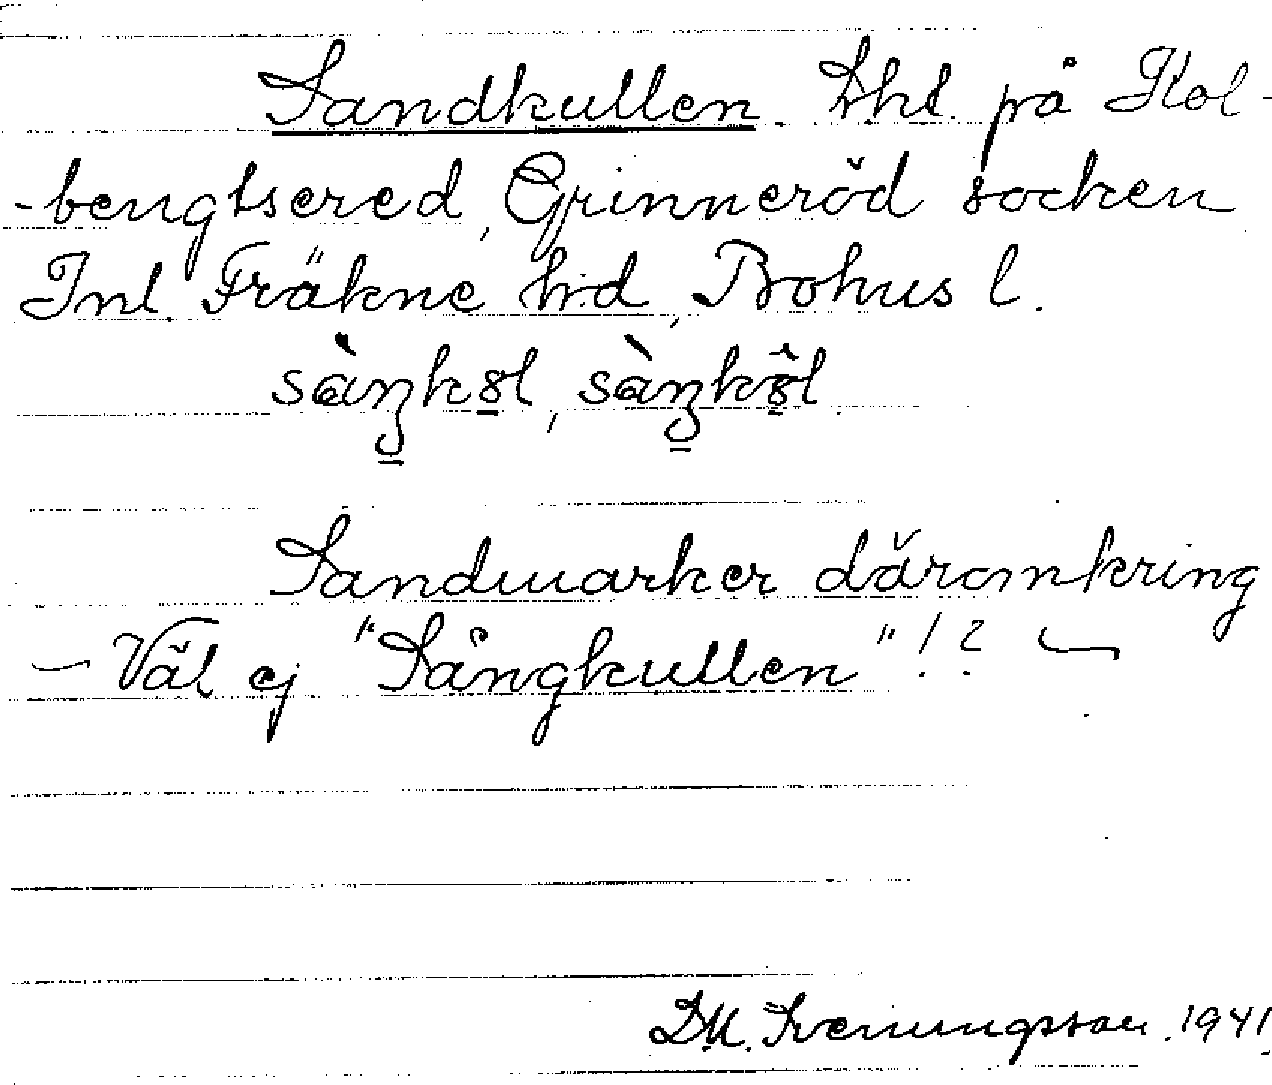 Sandkullen. Lht på Kol-
-bengtsered, Grinneröd socken
Inl. Fräkne hrd, Bohus l.
sàŋk8l, sàŋk8̂l.
Sandmarker däromkring
— Väl ej "Sångkullen"!? —
D.M. Sveningsson. 1941.